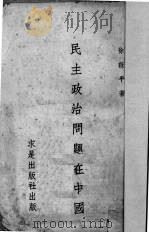 徐衡平著
民主政治問題在中國
求是出版社出版